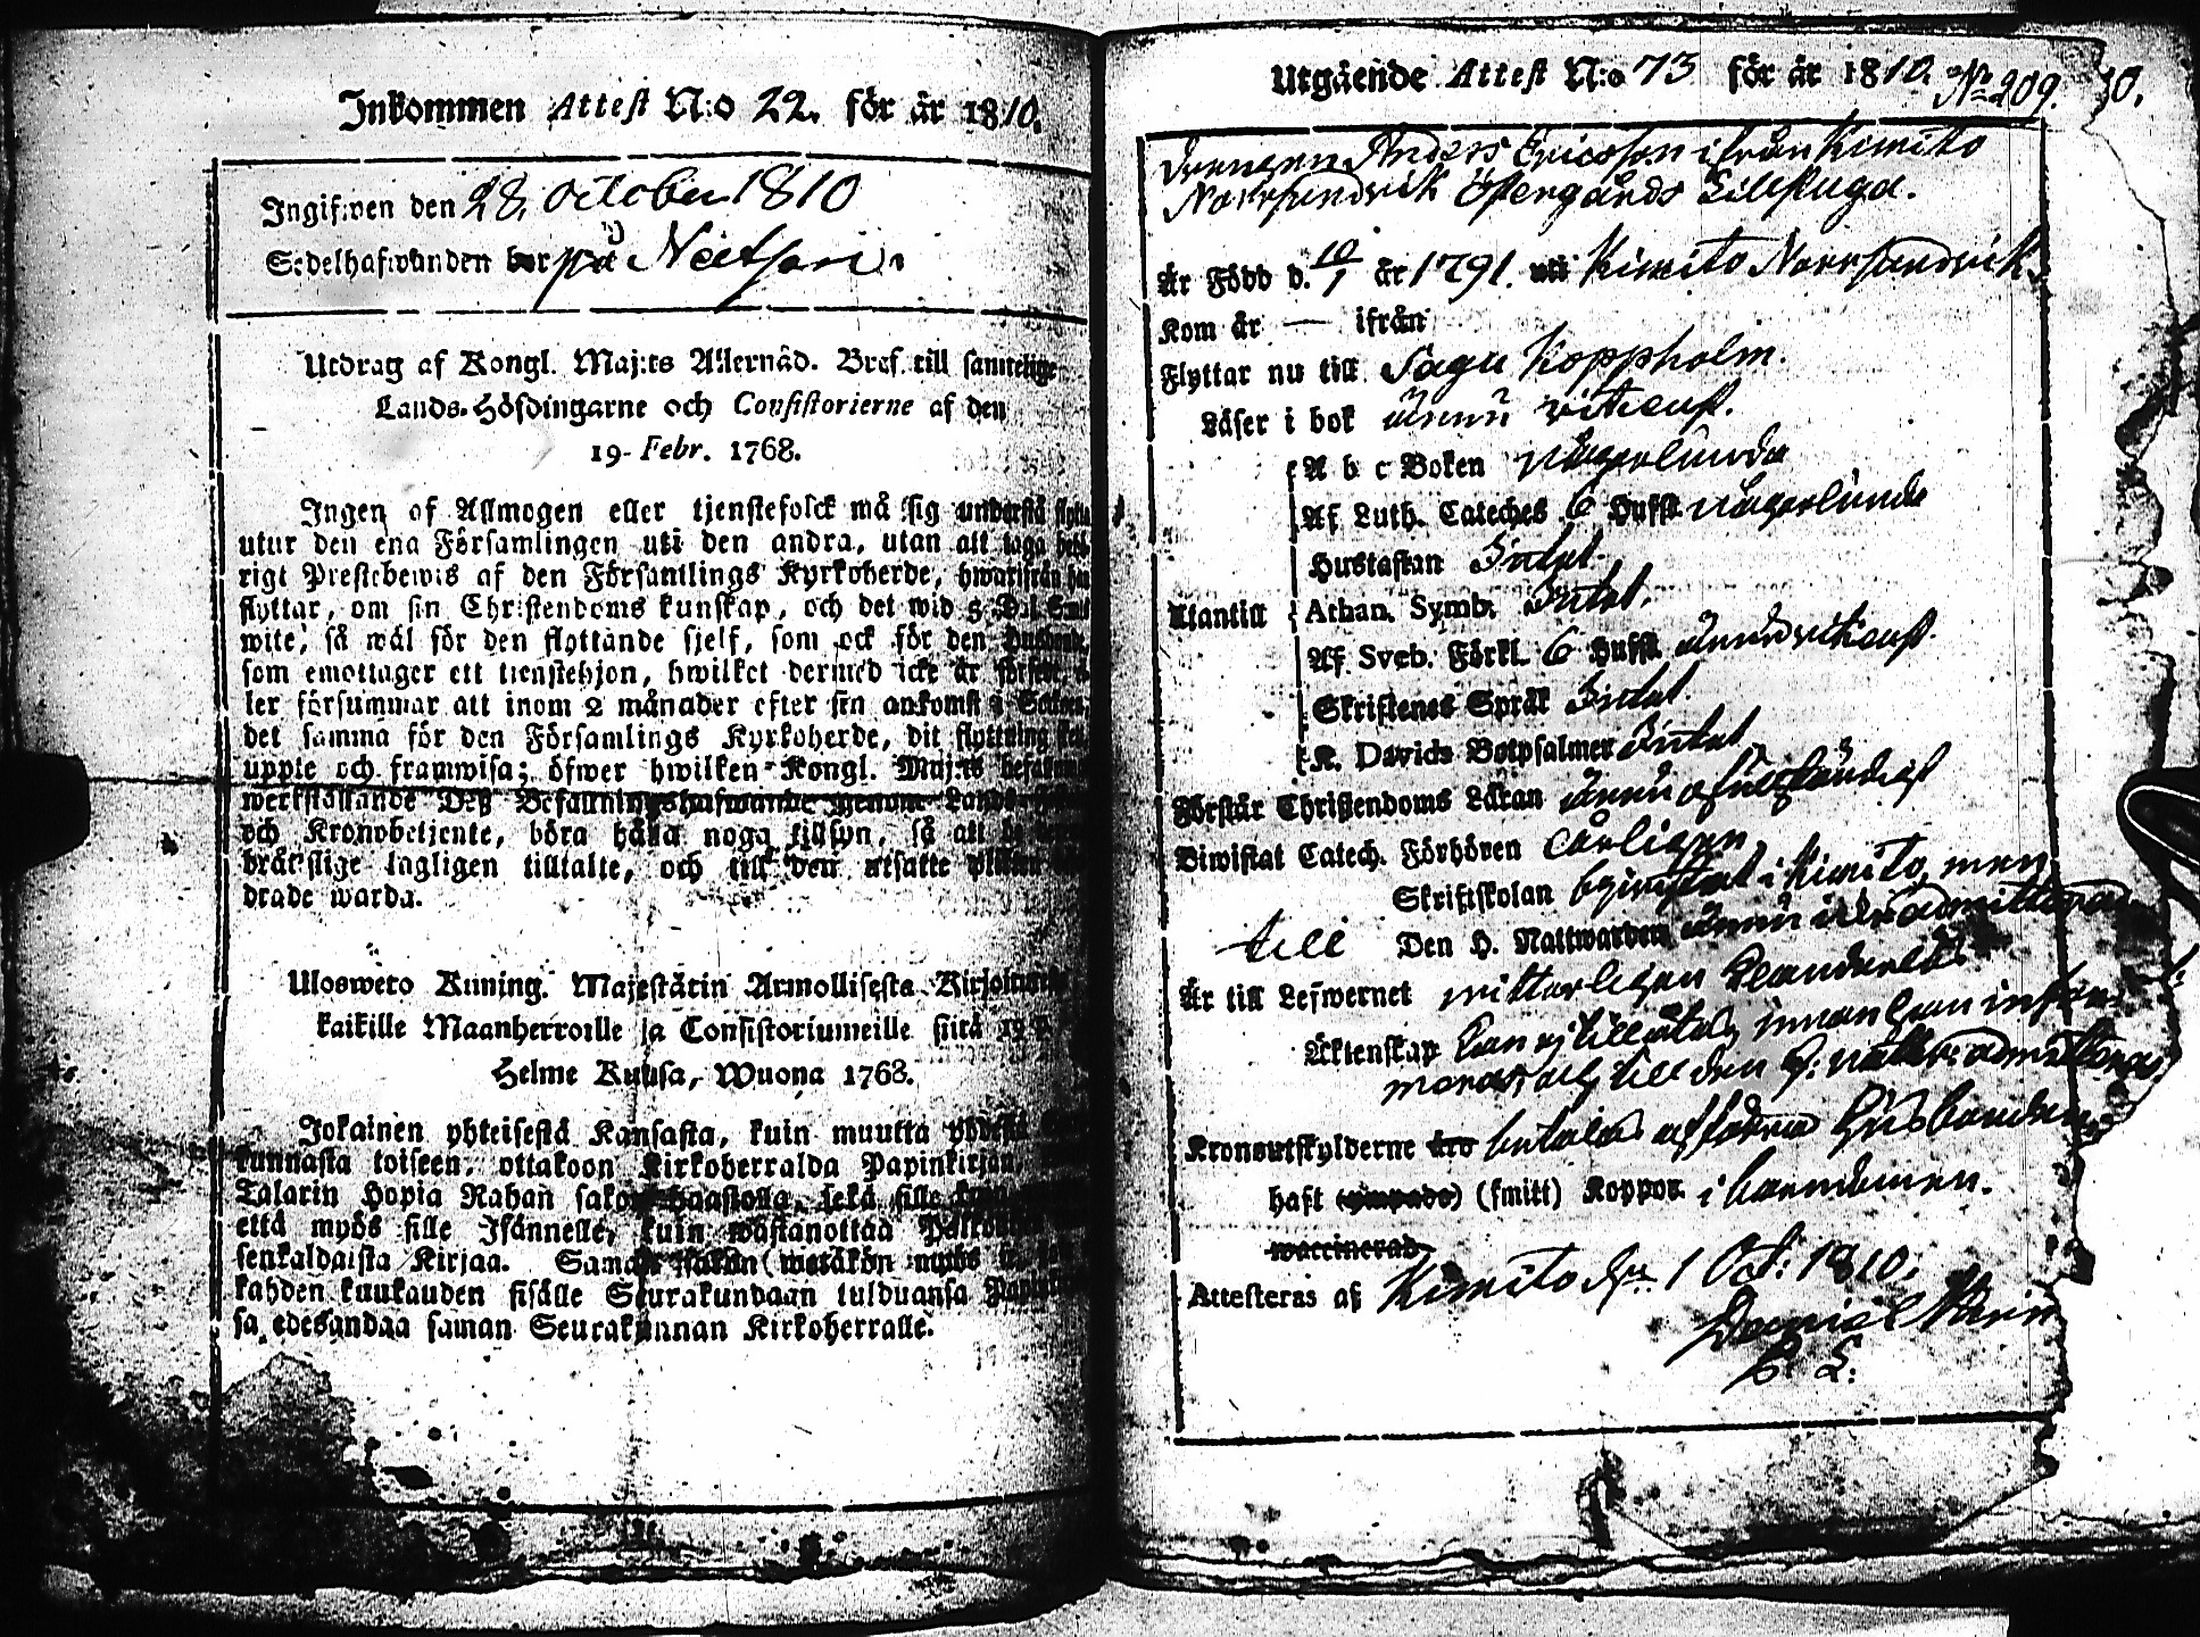 Inkommen Attest N:o 22. för år 1810.
Ingifwen den 28. October 1810
Sedelhafwanden bor på Neitsari
Utdrag af Kongl. Maj:ts Allernåd. Bref till samtelige
Lands-Höfdingarne och Consistorierne af den
19. Febr. 1768.
Ingen af Allmogen eller tjenstefolck må sig understå flytta
utur den ena Församlingen uti den andra, utan att taga behö-
rigt Prestebewis af den Församlings Kyrkoherde, hwarifrån han
flyttar, om sin Christendoms kunskap, och det wid 5 Dal. Smt
wite, så wäl för den flyttande sjelf, som ock för den Husbonde,
som emottager ett tienstehjon, hwilket dermed icke är försedt, el-
ler försummar att inom 2 månader efter sin ankomst i Socknen,
det samma för den Församlings Kyrkoherde, dit flyttning sker,
uppte och framwisa; öfwer hwilken Kongl. Maj:ts befallning
werkställande Deß Befallningshafwande genom Lands-
och Kronobetjente, böra hålla noga tillsyn, så att de
bråtslige lagligen tilltalte, och till den utsatte plikten
drade warda.
Ulosweto Kuning. Majestätin Armollisesta Kirjoituxesta
kaikille Maanherroille ja Consistoriumeille siitä 19 P.
Helme Kuusa, Wuona 1768.
Jokainen yhteisestä Kansasta, kuin muutta yhdestä
kunnasta toiseen, ottakoon Kirkoherralda Papinkirjan,
Talarin Hopia Rahan sakon haastolla, sekä sille
että myös sille Isännelle, kuin wastanottaa Palkollisen
senkaldaista Kirjaa. Saman sakon wetäkön myös se
kahden kuukauden sisälle Seurakundaan tulduansa Papin
sa edesandaa saman Seurakunnan Kirkoherralle.
Utgående Attest N:o 73 för år 1810. No 209. 30.
Drengen Anders Ericsson ifrån Kimito
Norrsundvik Östergårds Lillstuga.
Är Född d. 10/1 år 1791. uti Kimito Norrsundvik
Kom år — ifrån
Flyttar nu till Sagu Koppholm.
Läser i bok ännu ritienst.
A b c Boken någorlunda
Af Luth. Cateches 6 Hufst. någorlunda
Hustaflan Intet.
Utantill Athan. Symb. Intet.
Af Sveb. Förkl. 6 Hufst.
Skriftenes Språk Intet.
K. Davids Botpsalmer Intet
Förstår Christendoms Läran ännu ofullständigt
Biwistat Catech. Förhören årligen
Skriftskolan bewistat i Kimito, men
till Den H. Nattwarden ännu icke admitterad
Är till Lefwernet witterligen oklanderlös
Äktenskap kan ej tillåtas innan han
och till den H: nattw: admitteras
Kronoutskylderne äro betalas af förra Husbonden
haft (ympade) (smitt) Koppor i barndomen.
waccinerad.
Attesteras af Kimito d. 1 Oct: 1810.
Daniel
P. L: